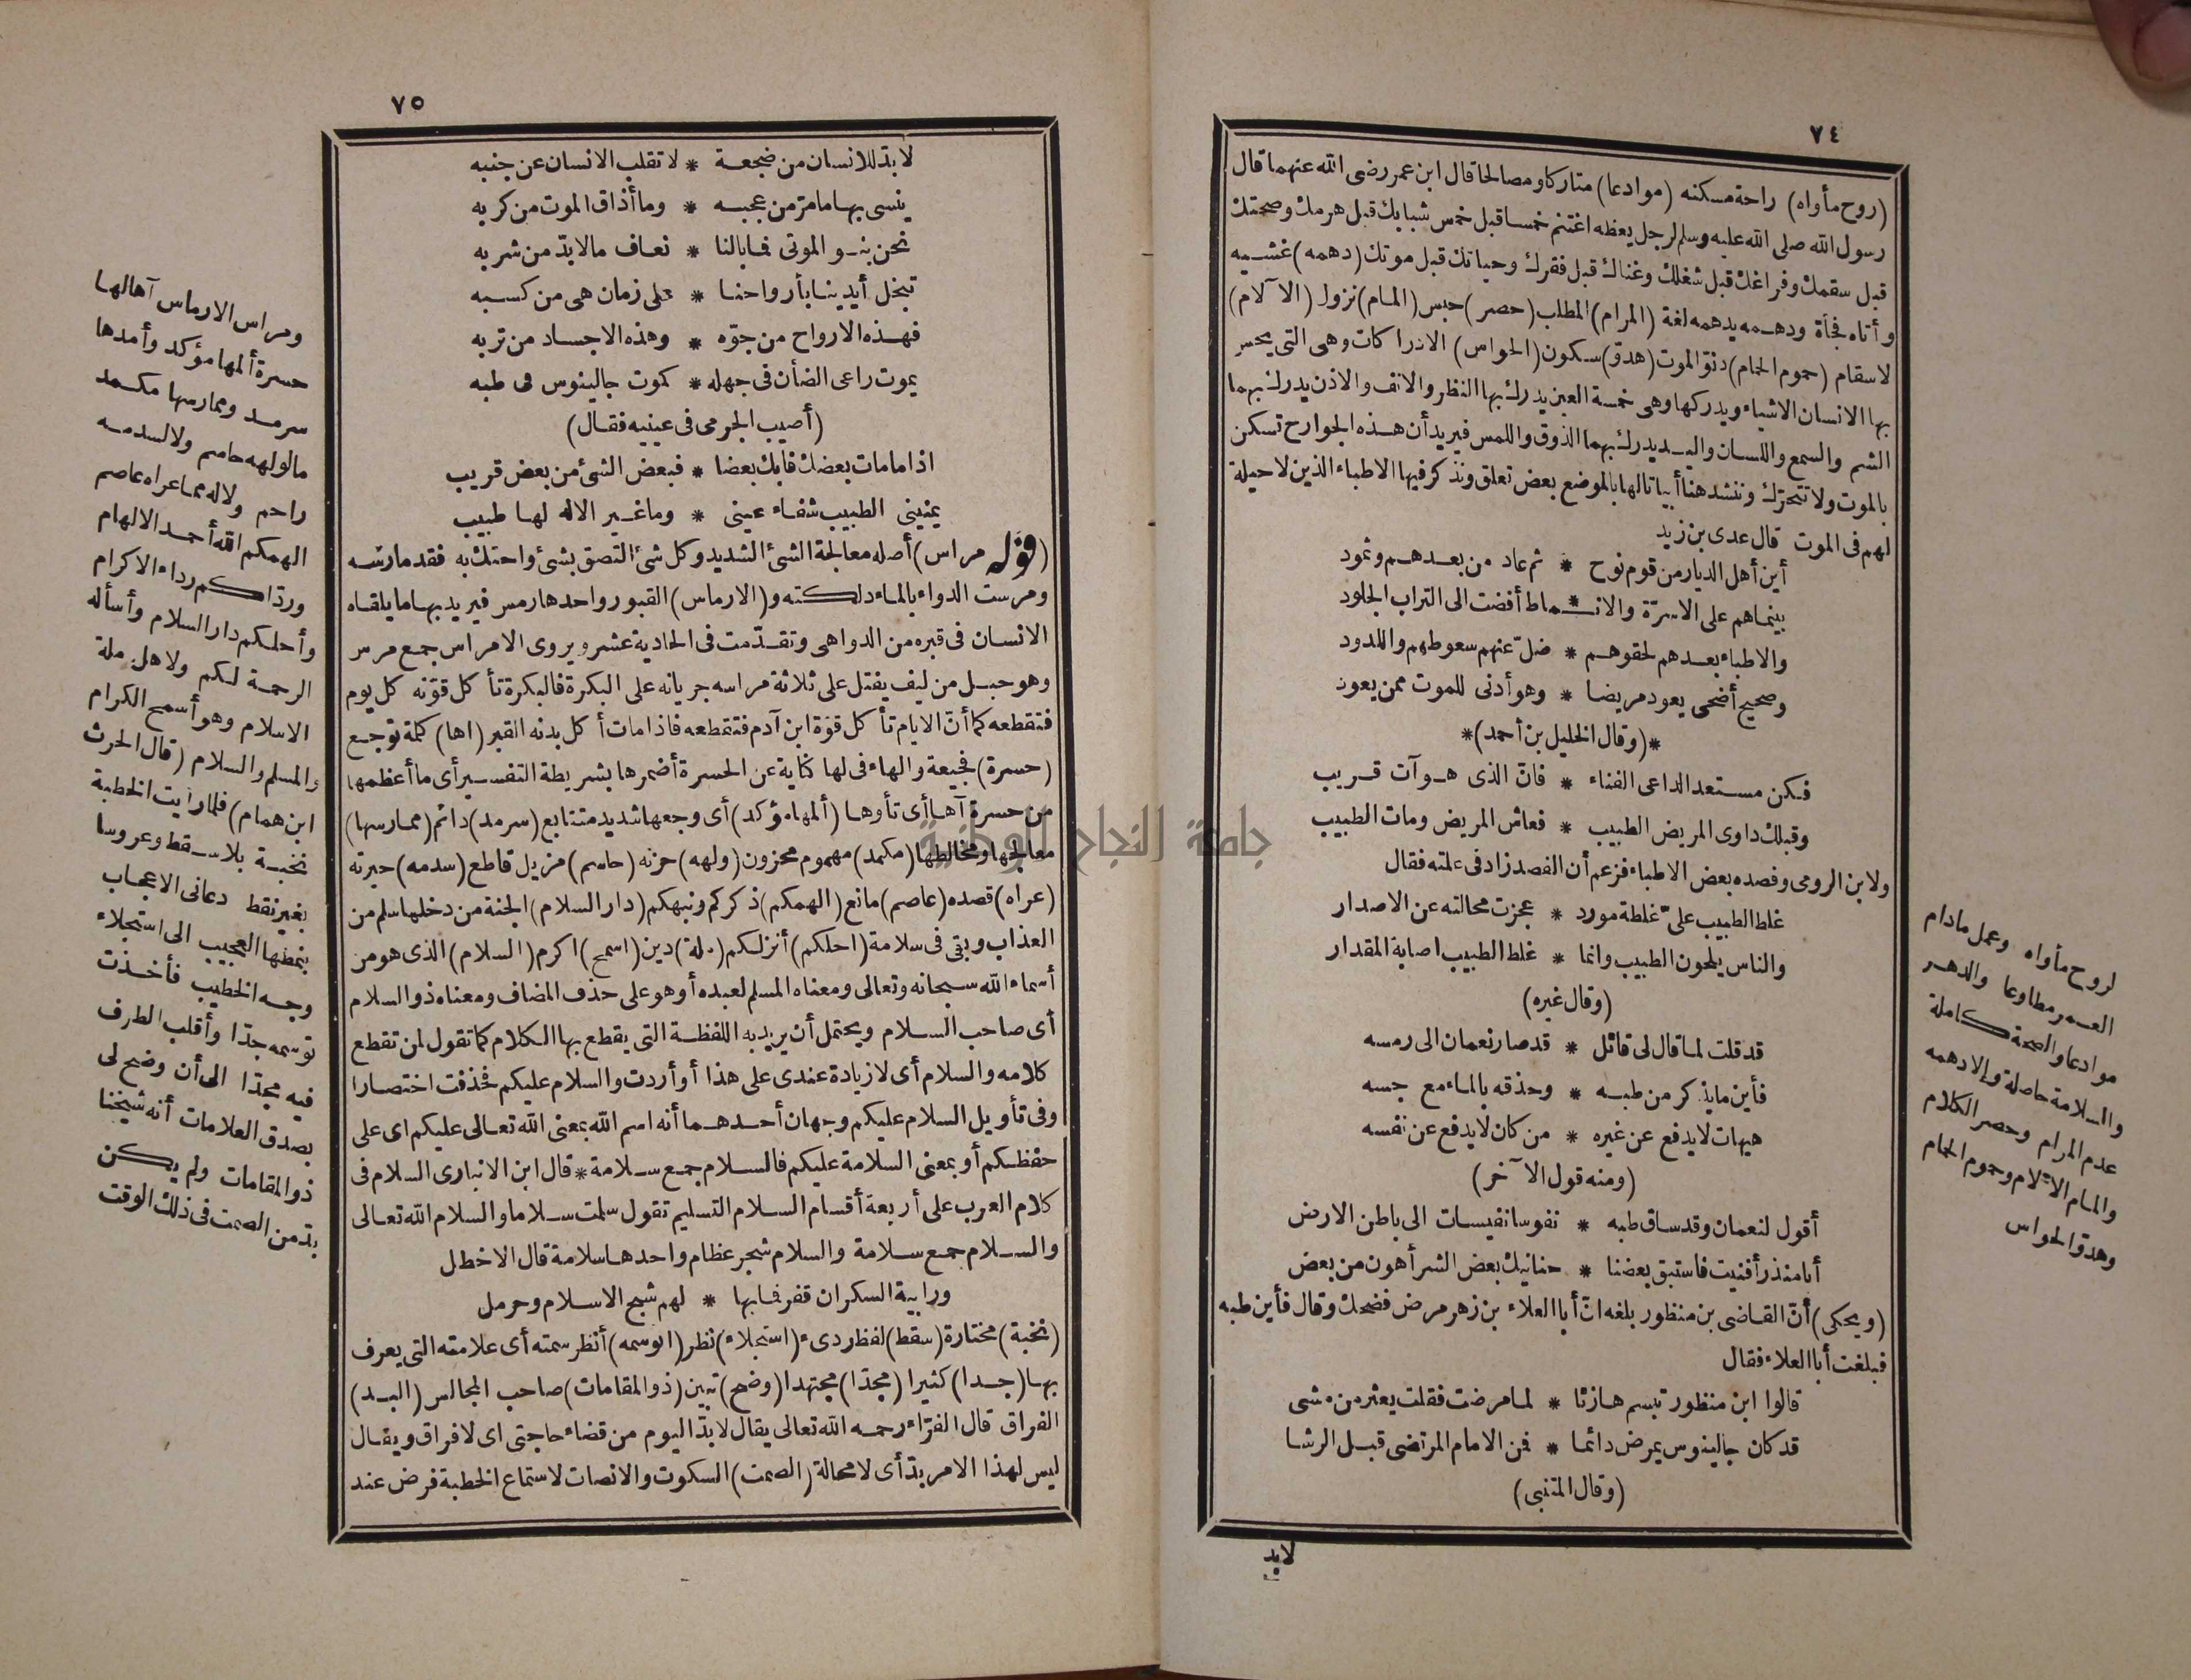 ٧٤
(روح مأواه) راحة مسكنه (موادعا) متاركا ومصالحا قال ابن عمر رضى الله عنهما قال
رسول الله صلى الله عليه وسلم لرجل يعظه اغتنم خمسا قبل خمس شبابك قبل هرمك وصحتك
قبل سقمك وفراغك قبل شغلك وغناك قبل فقرك وحياتك قبل موتك (دهمه) غشيه
وأتاه فجأة ودهمه يدهمه لغة (المرام) المطلب (حصر) حبس (المام) نزول (الآلام)
لاسقام (حموم الحمام) دنو الموت (هدو) سكون (الحواس) الادراكات وهى التى يحس
بها الانسان الاشياء ويدركها وهى خمسة العين يدرك بها النظر والانف والاذن يدرك بهما
الشم والسمع واللسان واليد يدرك بهما الذوق واللمس فيريد أن هذه الجوارح تسكن
بالموت ولا تتحرّك وننشد هنا أبياتا لها بالموضع بعض تعلق ونذكر فيها الاطباء الذين لا حيلة
لهم فى الموت قال عدى بن زيد
أين أهل الديار من قوم نوح * ثم عاد من بعدهم وثمود
بينما هم على الاسرّة والانـ * ـماط أفضت الى التراب الجلود
والاطباء بعدهم لحقوهم * ضلّ عنهم سعوطهم واللدود
وصحيح أضحى يعود مريضا * وهو أدنى للموت ممن يعود
*(وقال الخليل بن أحمد)*
فكن مستعد الداعى الفناء * فانّ الذى هو آت قريب
وقبلك داوى المريض الطبيب * فعاش المريض ومات الطبيب
ولابن الرومى وفصده بعض الاطباء فزعم أن الفصد زاد فى علته فقال
غلط الطبيب علىّ غلطة مورد * عجزت محالته عن الاصدار
والناس يلحون الطبيب وانما * غلط الطبيب اصابة المقدار
(وقال غيره)
قد قلت لما قال لى قائل * قد صار نعمان الى رمسه
فأين ما يذكر من طبه * وحذقه بالماء مع جسه
هيهات لا يدفع عن غيره * من كان لا يدفع عن نفسه
(ومنه قول الآخر)
أقول لنعمان وقد ساق طبه * نفوسا نفيسات الى باطن الارض
أبا منذر أفنيت فاستبق بعضنا * حنانيك بعض الشر أهون من بعض
(ويحكى) أنّ القاضى بن منظور بلغه انّ أبا العلاء بن زهر مرض فضحك وقال فأين طبه
فبلغت أبا العلاء فقال
قالوا ابن منظور تبسم هازئا * لما مرضت فقلت يعثر من مشى
قد كان جالينوس يمرض دائما * فمن الامام المرتضى قبل الرشا
(وقال المتنبى)
لابد
لروح مأواه وعمل مادام
العمر مطاوعا والدهر
موادعا والصحة كاملة
والسلامة حاصلة والا دهمه
عدم المرام وحصر الكلام
والمام الآلام وحموم الحمام
وهدو الحواس
٧٥
لا بدّ للانسان من ضجعة * لا تقلب الانسان عن جنبه
ينسى بها ما مرّ من عجبه * وما أذاق الموت من كربه
نحن بنو الموتى فما بالنا * نعاف ما لا بدّ من شربه
تبخل أيدينا بأرواحنا * على زمان هى من كسبه
فهذه الارواح من جوّه * وهذه الاجساد من تربه
يموت راعى الضأن فى جهله * كموت جالينوس فى طبه
(أصيب الجرمى فى عينيه فقال)
اذا ما مات بعضك فابك بعضا * فبعض الشئ من بعض قريب
يمنينى الطبيب شفاء عينى * وما غير الاله لها طبيب
(قوله مراس) أصله معالجة الشئ الشديد وكل شئ التصق بشئ واحتك به فقد مارسه
ومرست الدواء بالماء دلكته و(الارماس) القبور واحدها رمس فيريد بها ما يلقاه
الانسان فى قبره من الدواهى وتقدّمت فى الحادية عشر ويروى الامراس جمع مرس
وهو حبل من ليف يفتل على ثلاثة مراسه جريانه على البكرة فالبكرة تأكل قوّته كل يوم
فتقطعه كما أنّ الايام تأكل قوة ابن آدم فتقطعه فاذا مات أكل بدنه القبر (اها) كلمة توجع
(حسرة) فجيعة والهاء فى لها كناية عن الحسرة أضمرها بشريطة التفسير أى ما أعظمها
من حسرة آها أى تأوها (ألمها مؤكد) أى وجعها شديد متتابع (سرمد) دائم (ممارسها)
معالجها ومخالطها (مكمد) مهموم محزون (ولهه) حزنه (حاسم) مزيل قاطع (سدمه) حيرته
(عراه) قصده (عاصم) مانع (الهمكم) ذكركم ونبهكم (دار السلام) الجنة من دخلها سلم من
العذاب وبقى فى سلامة (احلكم) أنزلكم (ملة) دين (اسمح) اكرم (السلام) الذى هو من
أسماء الله سبحانه وتعالى ومعناه المسلم لعبده أو هو على حذف المضاف ومعناه ذو السلام
أى صاحب السلام ويحتمل أن يريد به اللفظة التى يقطع بها الكلام كما تقول لمن تقطع
كلامه والسلام أى لا زيادة عندى على هذا أو أردت والسلام عليكم فحذفت اختصارا
وفى تأويل السلام عليكم وجهان أحدهما أنه اسم الله بمعنى الله تعالى عليكم اى على
حفظكم أو بمعنى السلامة عليكم فالسلام جمع سلامة * قال ابن الانبارى السلام فى
كلام العرب على أربعة أقسام السلام التسليم تقول سلمت سلاما والسلام الله تعالى
والسلام جمع سلامة والسلام شجر عظام واحدها سلامة قال الاخطل
ورابية السكران قفر فما بها * لهم شبح الاسلام وحرمل
(نخبة) مختارة (سقط) لفظ ردىء (استجلاء) نظر (اتوسمه) أنظر سمته أى علامته التى يعرف
بها (جدا) كثيرا (مجدّا) مجتهدا (وضح) تبين (ذو المقامات) صاحب المجالس (البد)
الفراق قال الفرّاء رحمه الله تعالى يقال لا بدّ اليوم من قضاء حاجتى اى لا فراق ويقال
ليس لهذا الامر بدّ أى لا محالة (الصمت) السكوت والانصات لاستماع الخطبة فرض عند
ومراس الارماس آها لها
حسرة ألمها مؤكد وأمدها
سرمد وممارسها مكمد
ما لولهه حاسم ولا لسدمه
راحم ولا له مما عراه عاصم
الهمكم الله أحمد الالهام
وردّاكم رداء الاكرام
وأحلكم دار السلام وأسأله
الرحمة لكم ولاهل ملة
الاسلام وهو أسمح الكرام
والمسلم والسلام (قال الحرث
ابن همام) فلما رأيت الخطبة
نخبة بلا سقط وعروسا
بغير نقط دعانى الاعجاب
بنمطها العجيب الى استجلاء
وجه الخطيب فأخذت
توسمه جدّا وأقلب الطرف
فيه مجدّا الى أن وضح لى
بصدق العلامات أنه شيخنا
ذو المقامات ولم يكن
بدّ من الصمت فى ذلك الوقت
جامعة النجاح الوطنية